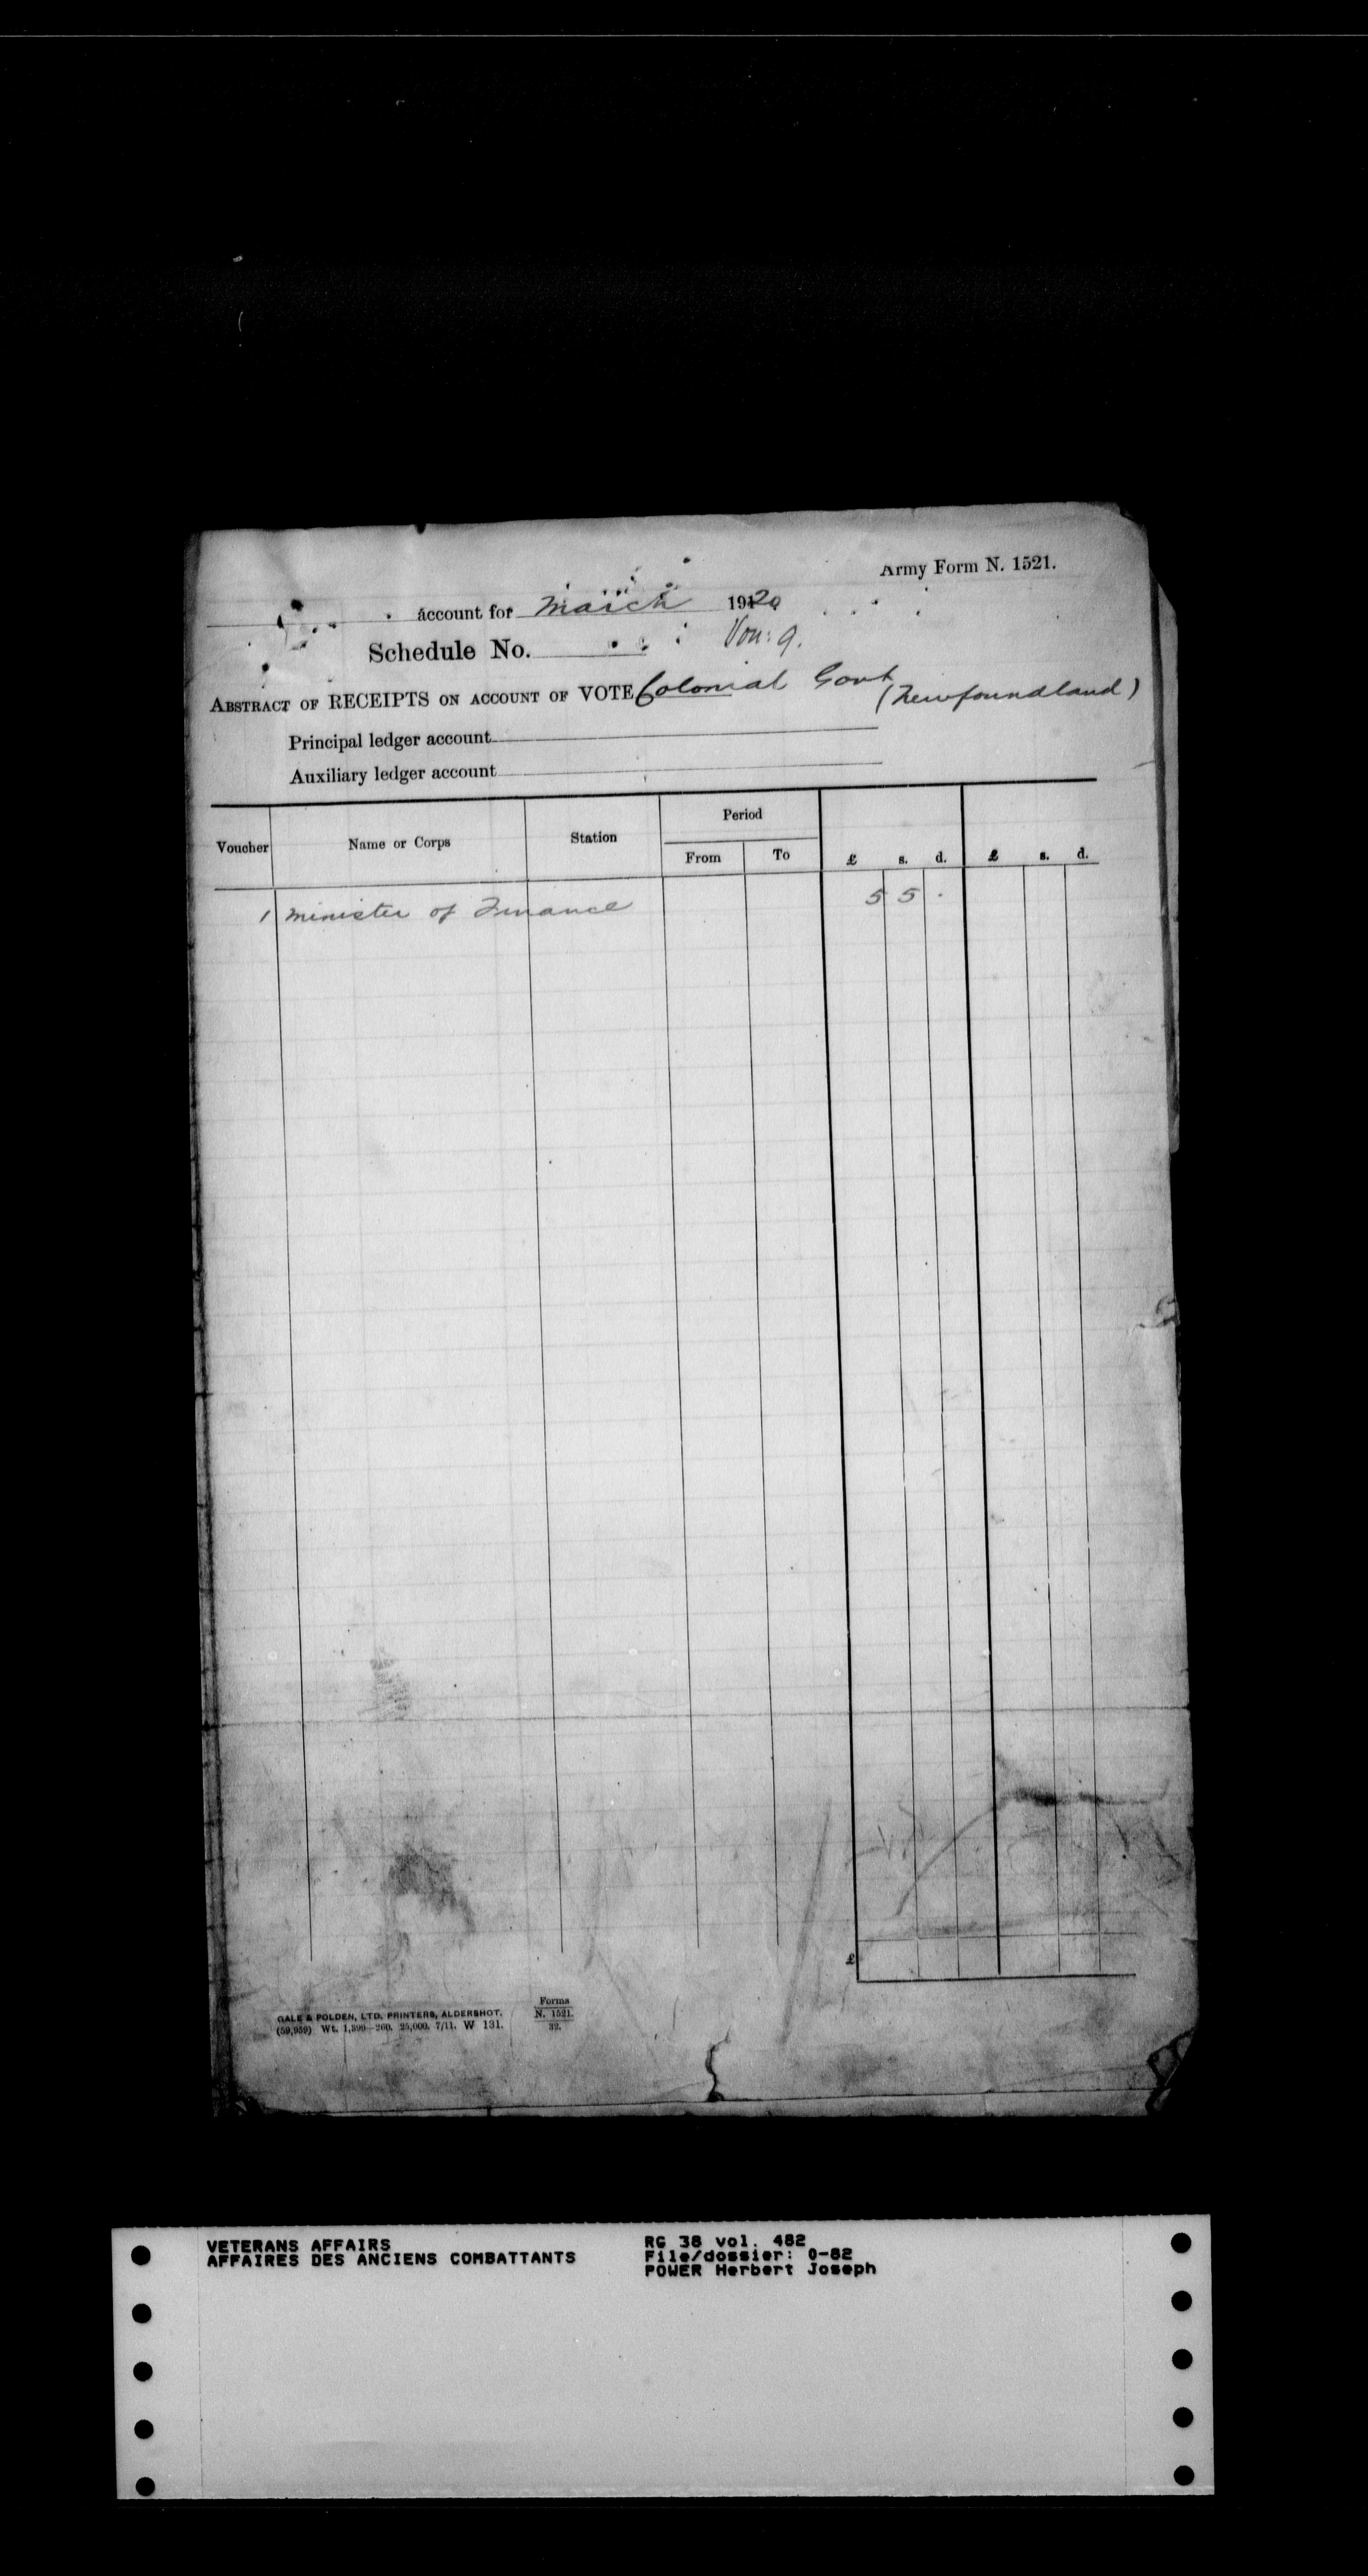 Army Form N. 1521.
account for March 1920
Schedule No. Vou: 9.
ABSTRACT OF RECEIPTS ON ACCOUNT OF VOTE Colonial Govt
(Newfoundland)
Principal ledger account
Auxiliary ledger account
Voucher Name or Corps Station Period
From To £ s. d. £ s. d.
1 Minister of Finance 5 5 .
£
GALE & POLDEN, LTD. PRINTERS, ALDERSHOT.
(59,959) Wt. 25,000. 7/11. W 131.
Forms
N. 1521.
32.
VETERANS AFFAIRS
AFFAIRES DES ANCIENS COMBATTANTS
RG 38 vol. 482
File/dossier: 0-82
POWER Herbert Joseph